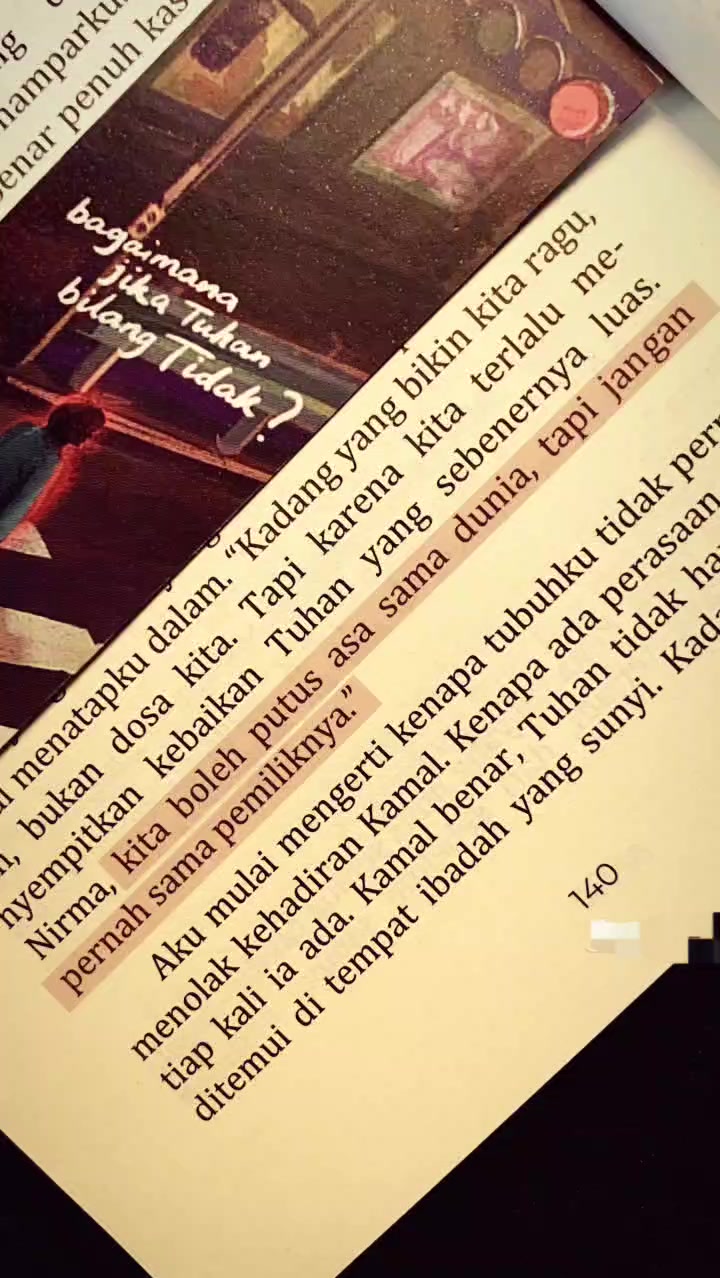 namparku
enar penuh kas
bagaimana
jika Tuhan
bilang Tidak?
menatapku dalam. “Kadang yang bikin kita ragu,
bukan dosa kita. Tapi karena kita terlalu me-
nyempitkan kebaikan Tuhan yang sebenernya luas.
Nirma, kita boleh putus asa sama dunia, tapi jangan
pernah sama pemiliknya.”
Aku mulai mengerti kenapa tubuhku tidak pern
menolak kehadiran Kamal. Kenapa ada perasaan
tiap kali ia ada. Kamal benar, Tuhan tidak ha
ditemui di tempat ibadah yang sunyi. Kada
140